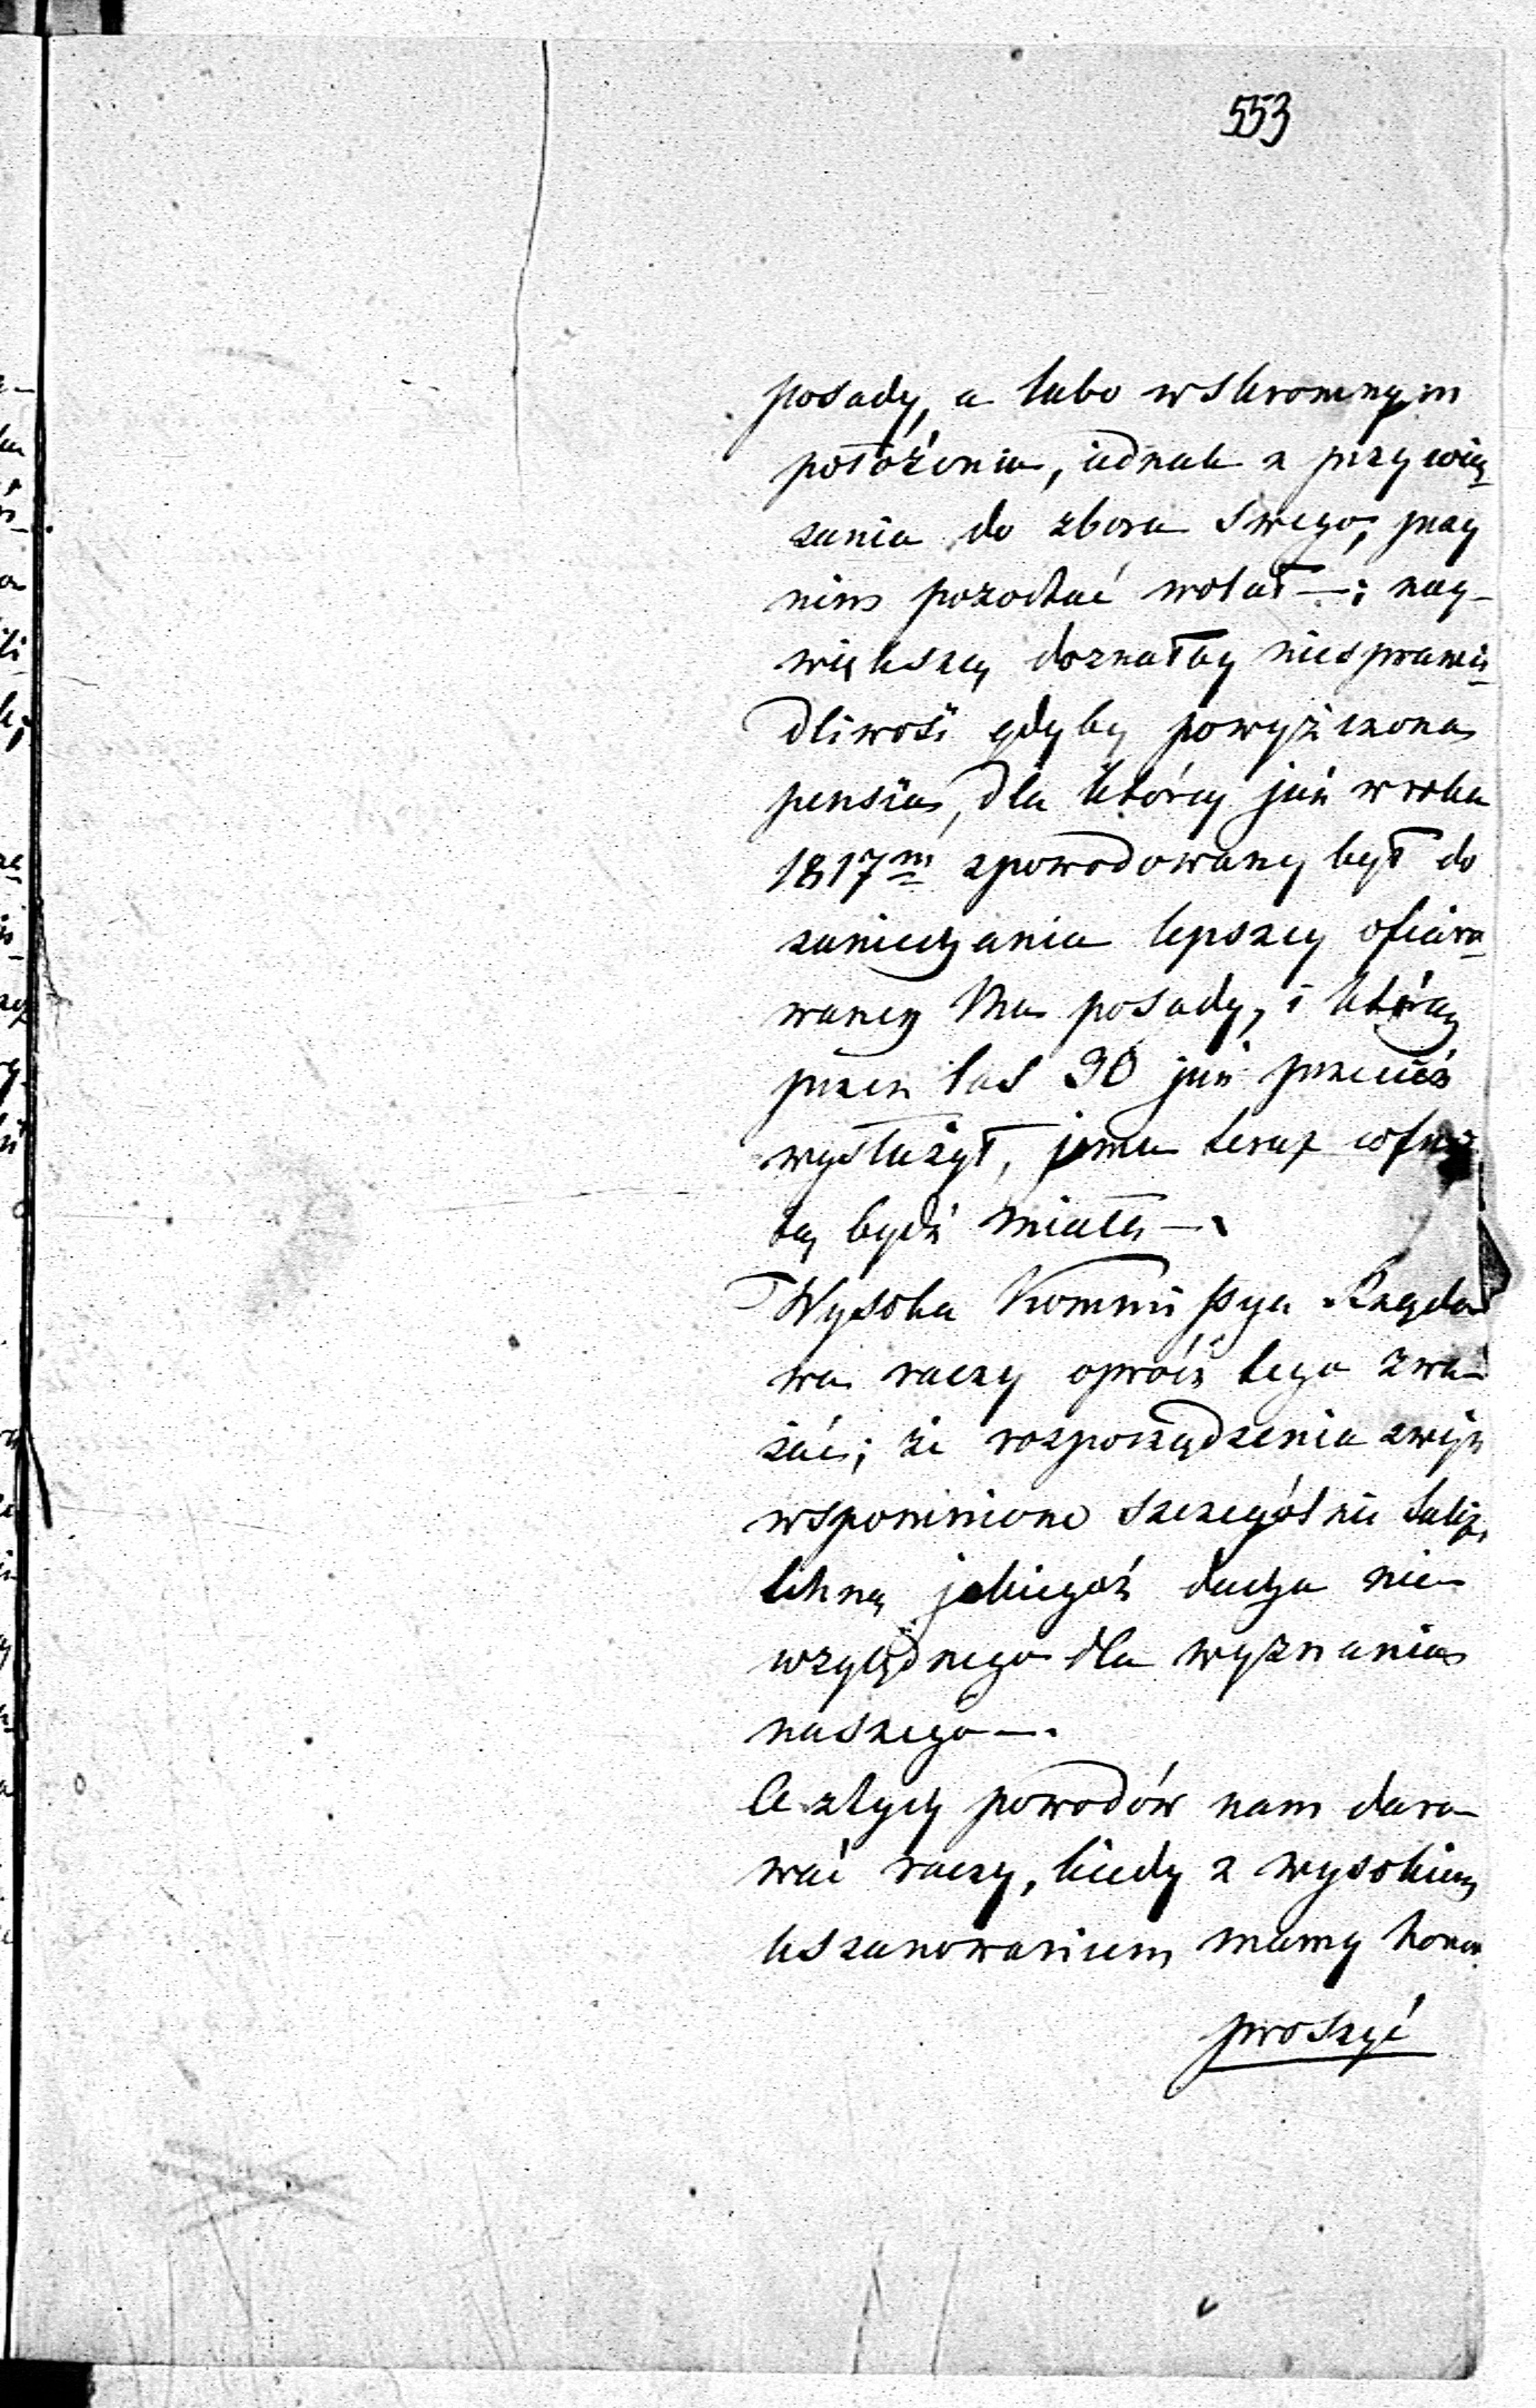 553
posady, a lubo w skromnym
położeniu, iednak z przywią
zania do zboru swego, przy
nim pozostać wolał —; nay-
większey doznałby niesprawie
dliwości gdyby powyższona
pensia, dla którey już w roku
1817m spowodowany był do
zaniechania lepszey ofiaro
waney Mu posady, i którą
przez lat 30 już przecież
wysłużył, jemu teraz cofnię
tą bydź miała —.
Wysoka Kommissya Rządo
wa raczy oprócz tego zwa-
żać; że rozporządzenia zwyż
wspomnione szczególnie
tchną jakiegoś ducha nie
względnego dla wyznania
naszego —.
A z tych powodów nam daro-
wać raczy, kiedy z wysokiem
uszanowaniem mamy honor
prosząć